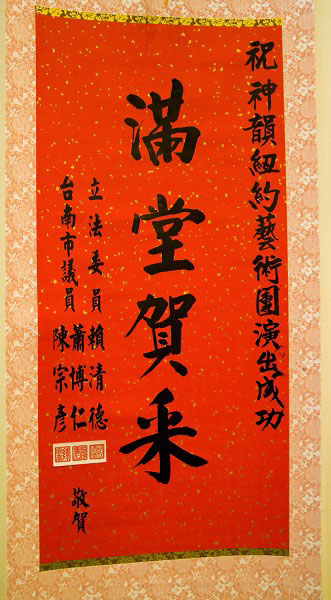 祝神韻紐約藝術團演出成功
滿堂賀采
立法委員 賴清德
台南市議員 蕭博仁
陳宗彥
敬賀